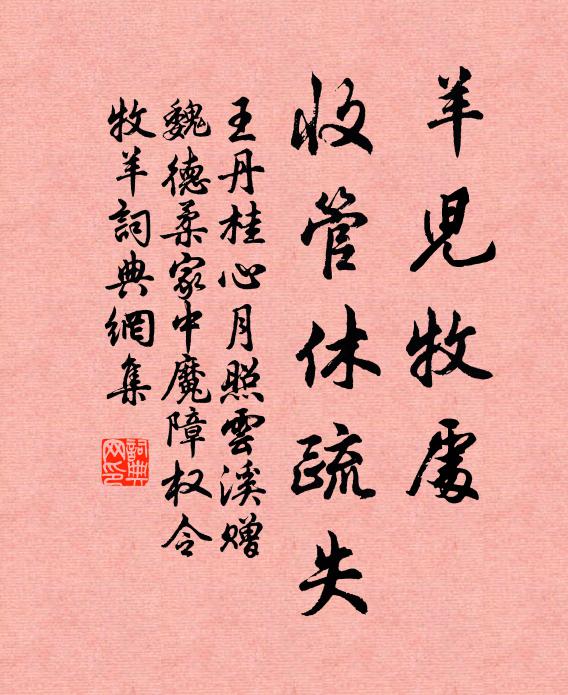 羊児牧處
收管休疏失
王丹桂心月照雲溪赠
魏德柔家中魔障权令
牧羊詞典網集
詞典网印